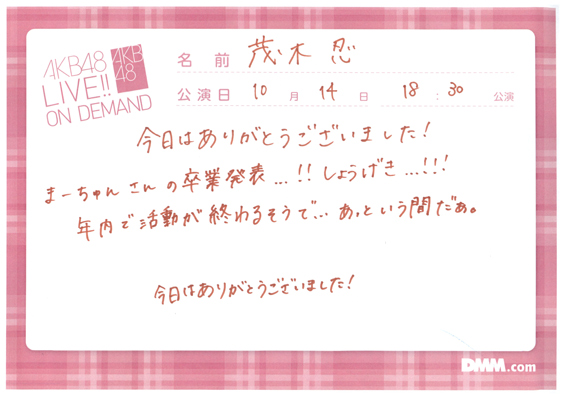 AKB48
LIVE!!
ON DEMAND
AKB
48
名前 茂木 忍
公演日 10 月 14 日 18 : 30 公演
今日はありがとうございました!
まーちゅんさんの卒業発表...!! しょうげき...!!!
年内で活動が終わるそうで... あっという間だぁ。
今日はありがとうございました!
DMM.com